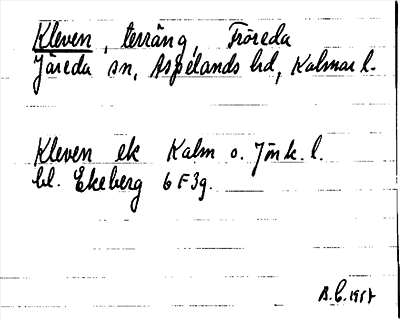 Kleven, terräng, Fröreda
Järeda sn, Aspelands hd, Kalmar l.
Kleven ek Kalm o. Jönk. l.
bl. Ekeberg 6 F 3g.